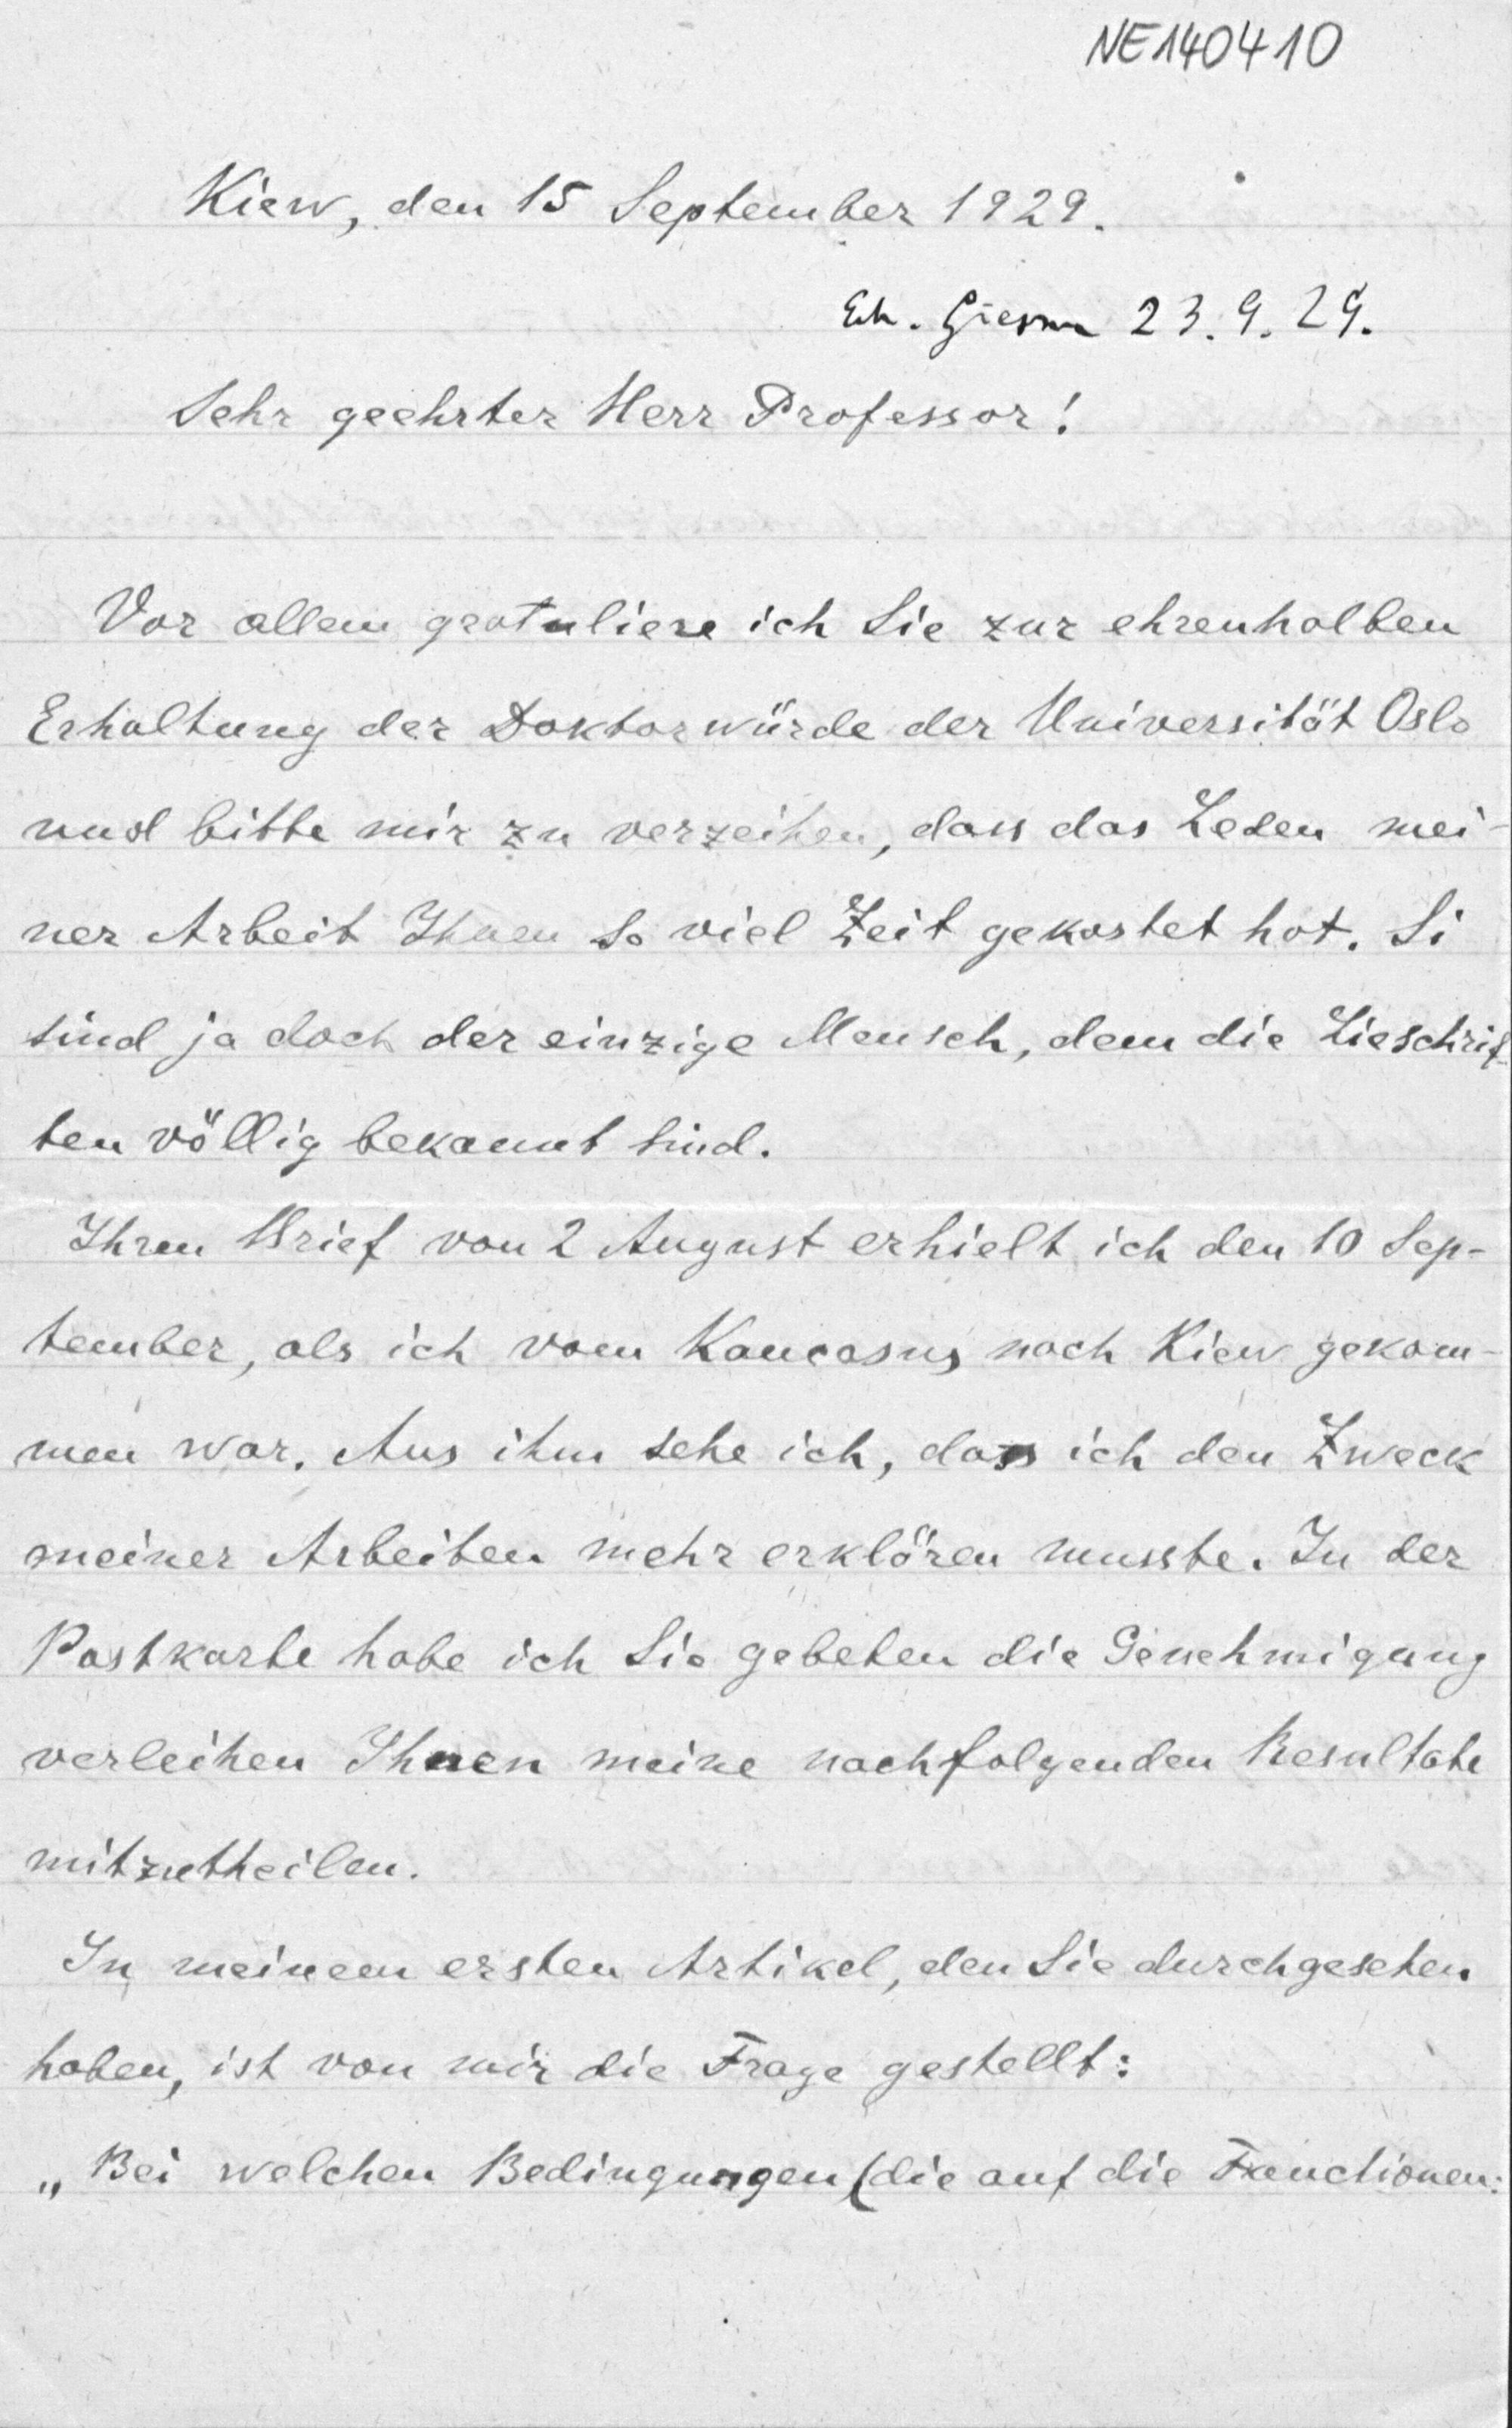 NE140410
Kiew, den 15 September 1929.
Eh. Giessen 23.9.29.
Sehr geehrter Herr Professor!
Vor allem gratuliere ich Sie zur ehrenhalben
Erhaltung der Doktorwürde der Universität Oslo
und bitte mir zu verzeihen, dass das Lesen mei-
ner Arbeit Ihnen so viel Zeit gekostet hat. Si
sind ja doch der einzige Mensch, dem die Lieschrif-
ten völlig bekannt sind.
Ihren Brief von 2 August erhielt ich den 10 Sep-
tember, als ich vom Kaucasus nach Kiew gekom-
men war. Aus ihm sehe ich, dass ich den Zweck
meiner Arbeiten mehr erklären musste. In der
Postkarte habe ich Sie gebeten die Genehmigung
verleihen Ihnen meine nachfolgenden Resultate
mitzutheilen.
In meinem ersten Artikel, den Sie durchgesehen
haben, ist von mir die Frage gestellt:
„Bei welchen Bedingungen (die auf die Functionen: